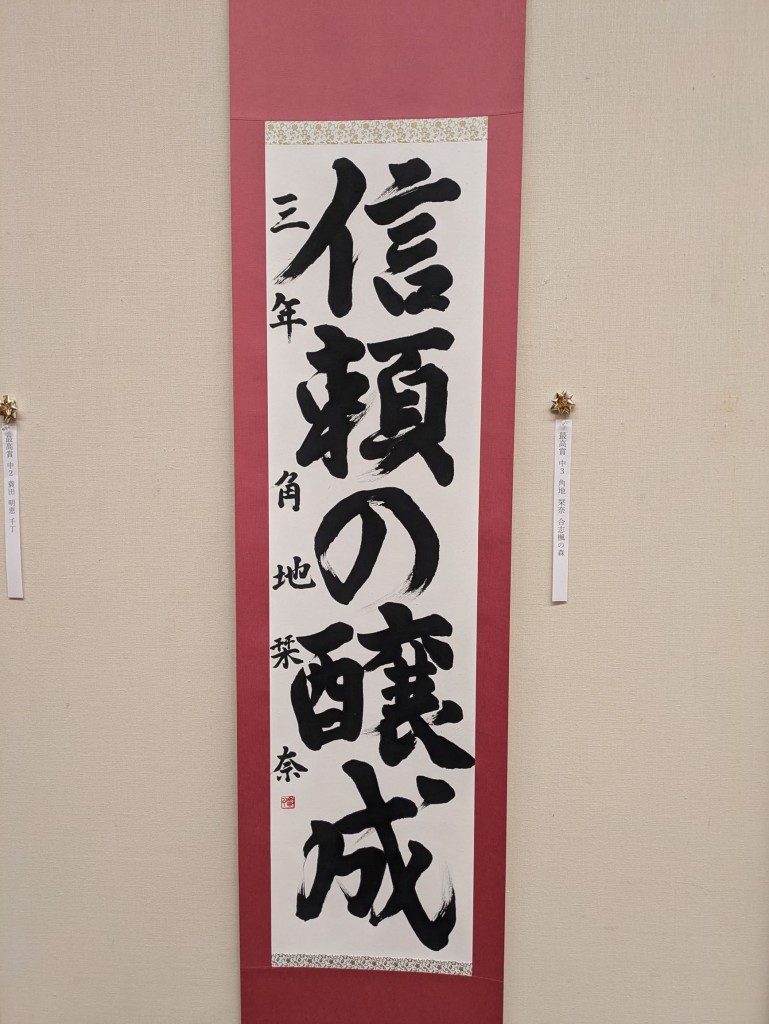 信頼の醸成
三年 角地栞奈
最高賞 中3 角地 栞奈 合志楓の森
最高賞 中2 田 明恵 千丁